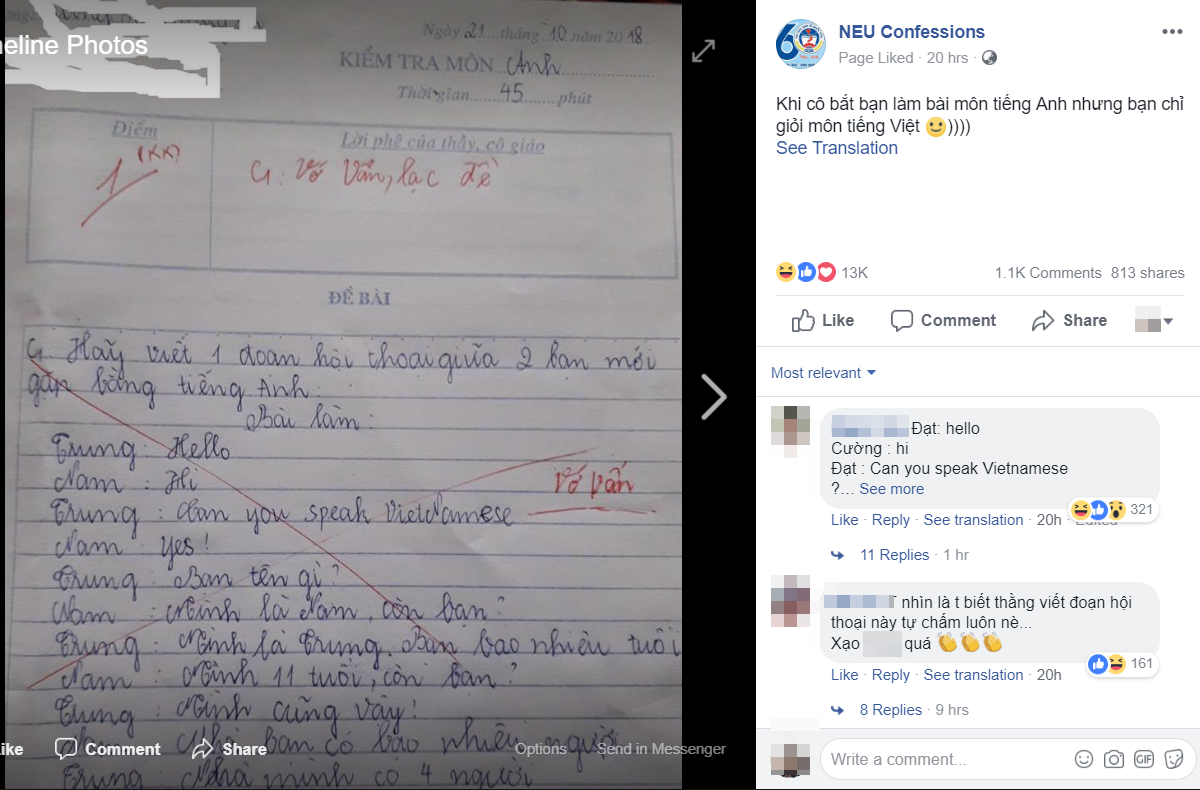 Timeline Photos
Ngày 21 tháng 10 năm 2018
KIỂM TRA MÔN Anh
Thời gian 45 phút
Điểm
1 (KK)
Lời phê của thầy, cô giáo
G: Vớ Vẩn, lạc đề
ĐỀ BÀI
G Hãy viết 1 đoạn hội thoại giữa 2 bạn mới
gặp bằng tiếng Anh:
Bài làm:
Trung: Hello
Nam : Hi
Trung: Can you speak VietNamese
Vớ vẩn
Nam : yes!
Trung: Bạn tên gì?
Nam : Mình là Nam, còn bạn?
Trung: Mình là Trung. Bạn bao nhiêu tuổi
Nam : Mình 11 tuổi, còn bạn?
Trung: Mình cũng vậy!
Nhà bạn có bao nhiêu người
Trung: Nhà mình có 4 người
Like Comment Share Options Send in Messenger
NEU Confessions
Page Liked · 20 hrs ·
Khi cô bắt bạn làm bài môn tiếng Anh nhưng bạn chỉ
giỏi môn tiếng Việt 🙂))))
See Translation
13K 1.1K Comments 813 shares
Like Comment Share
Most relevant
Đạt: hello
Cường : hi
Đạt : Can you speak Vietnamese
?... See more
321
Like · Reply · See translation · 20h · Edited
11 Replies · 1 hr
nhìn là t biết thằng viết đoạn hội
thoại này tự chấm luôn nè...
Xạo quá 👏👏👏
161
Like · Reply · See translation · 20h
8 Replies · 9 hrs
Write a comment...
GIF